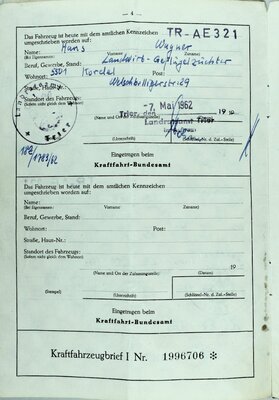 — 4 —
Das Fahrzeug ist heute mit dem amtlichen Kennzeichen TR-AE321
umgeschrieben worden auf:
Name: Hans Wagner
(Bei Eigennamen:) Vorname: Zuname:
Beruf, Gewerbe, Stand: Landwirt-Geflügelzüchter
Wohnort: 5501 Kordel Post:
Welschbilligerstr. 29
Standort des Fahrzeugs:
(Sofern nicht gleich dem Wohnort)
Trier, den -7. Mai 1962 19
Landratsamt Trier
(Unterschrift) (Schlüssel-Nr. d. Zul.-Stelle)
Eingetragen beim
Kraftfahrt-Bundesamt
Das Fahrzeug ist heute mit dem amtlichen Kennzeichen
umgeschrieben worden auf:
Name:
(Bei Eigennamen:) Vorname: Zuname:
Beruf, Gewerbe, Stand:
Wohnort: Post:
Straße, Haus-Nr.:
Standort des Fahrzeugs:
(Sofern nicht gleich dem Wohnort)
19
(Name und Ort der Zulassungsstelle) (Datum)
(Stempel) (Unterschrift) (Schlüssel-Nr. d. Zul.-Stelle)
Eingetragen beim
Kraftfahrt-Bundesamt
Kraftfahrzeugbrief I Nr. 1996706 ✻